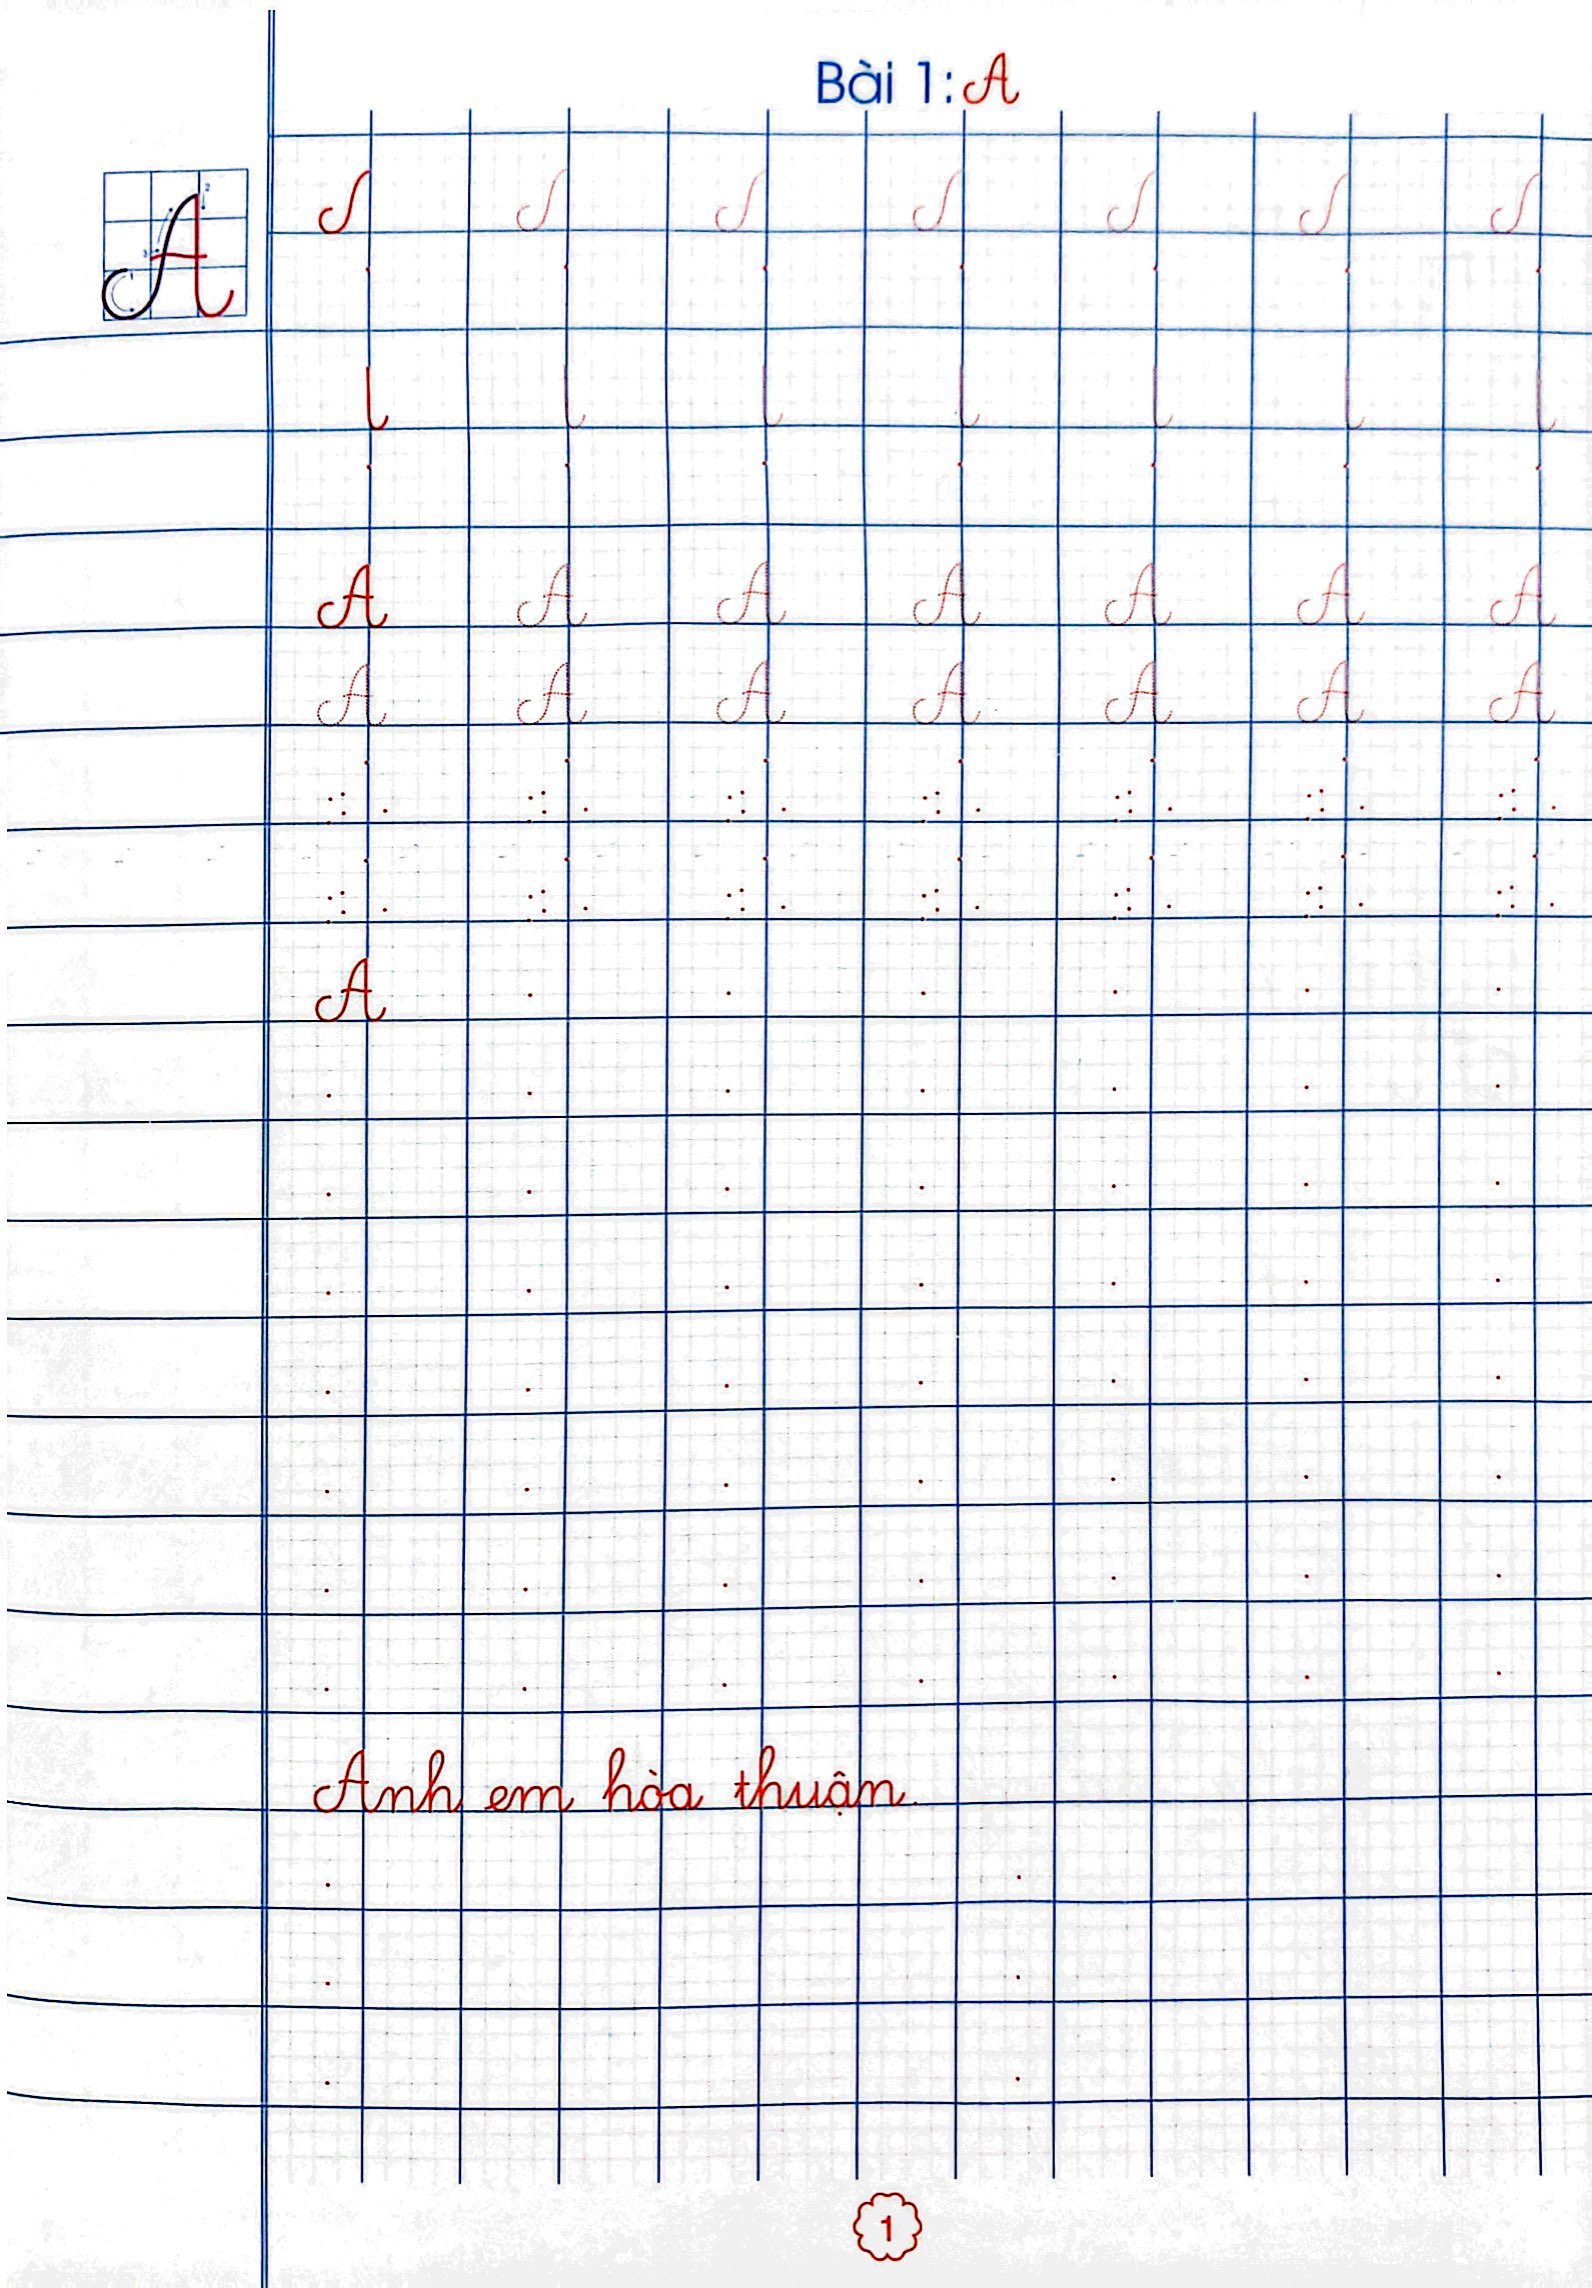 Bài 1: A
2
3
A
A A A A A A A
A A A A A A A
A
Anh em hòa thuận.
1